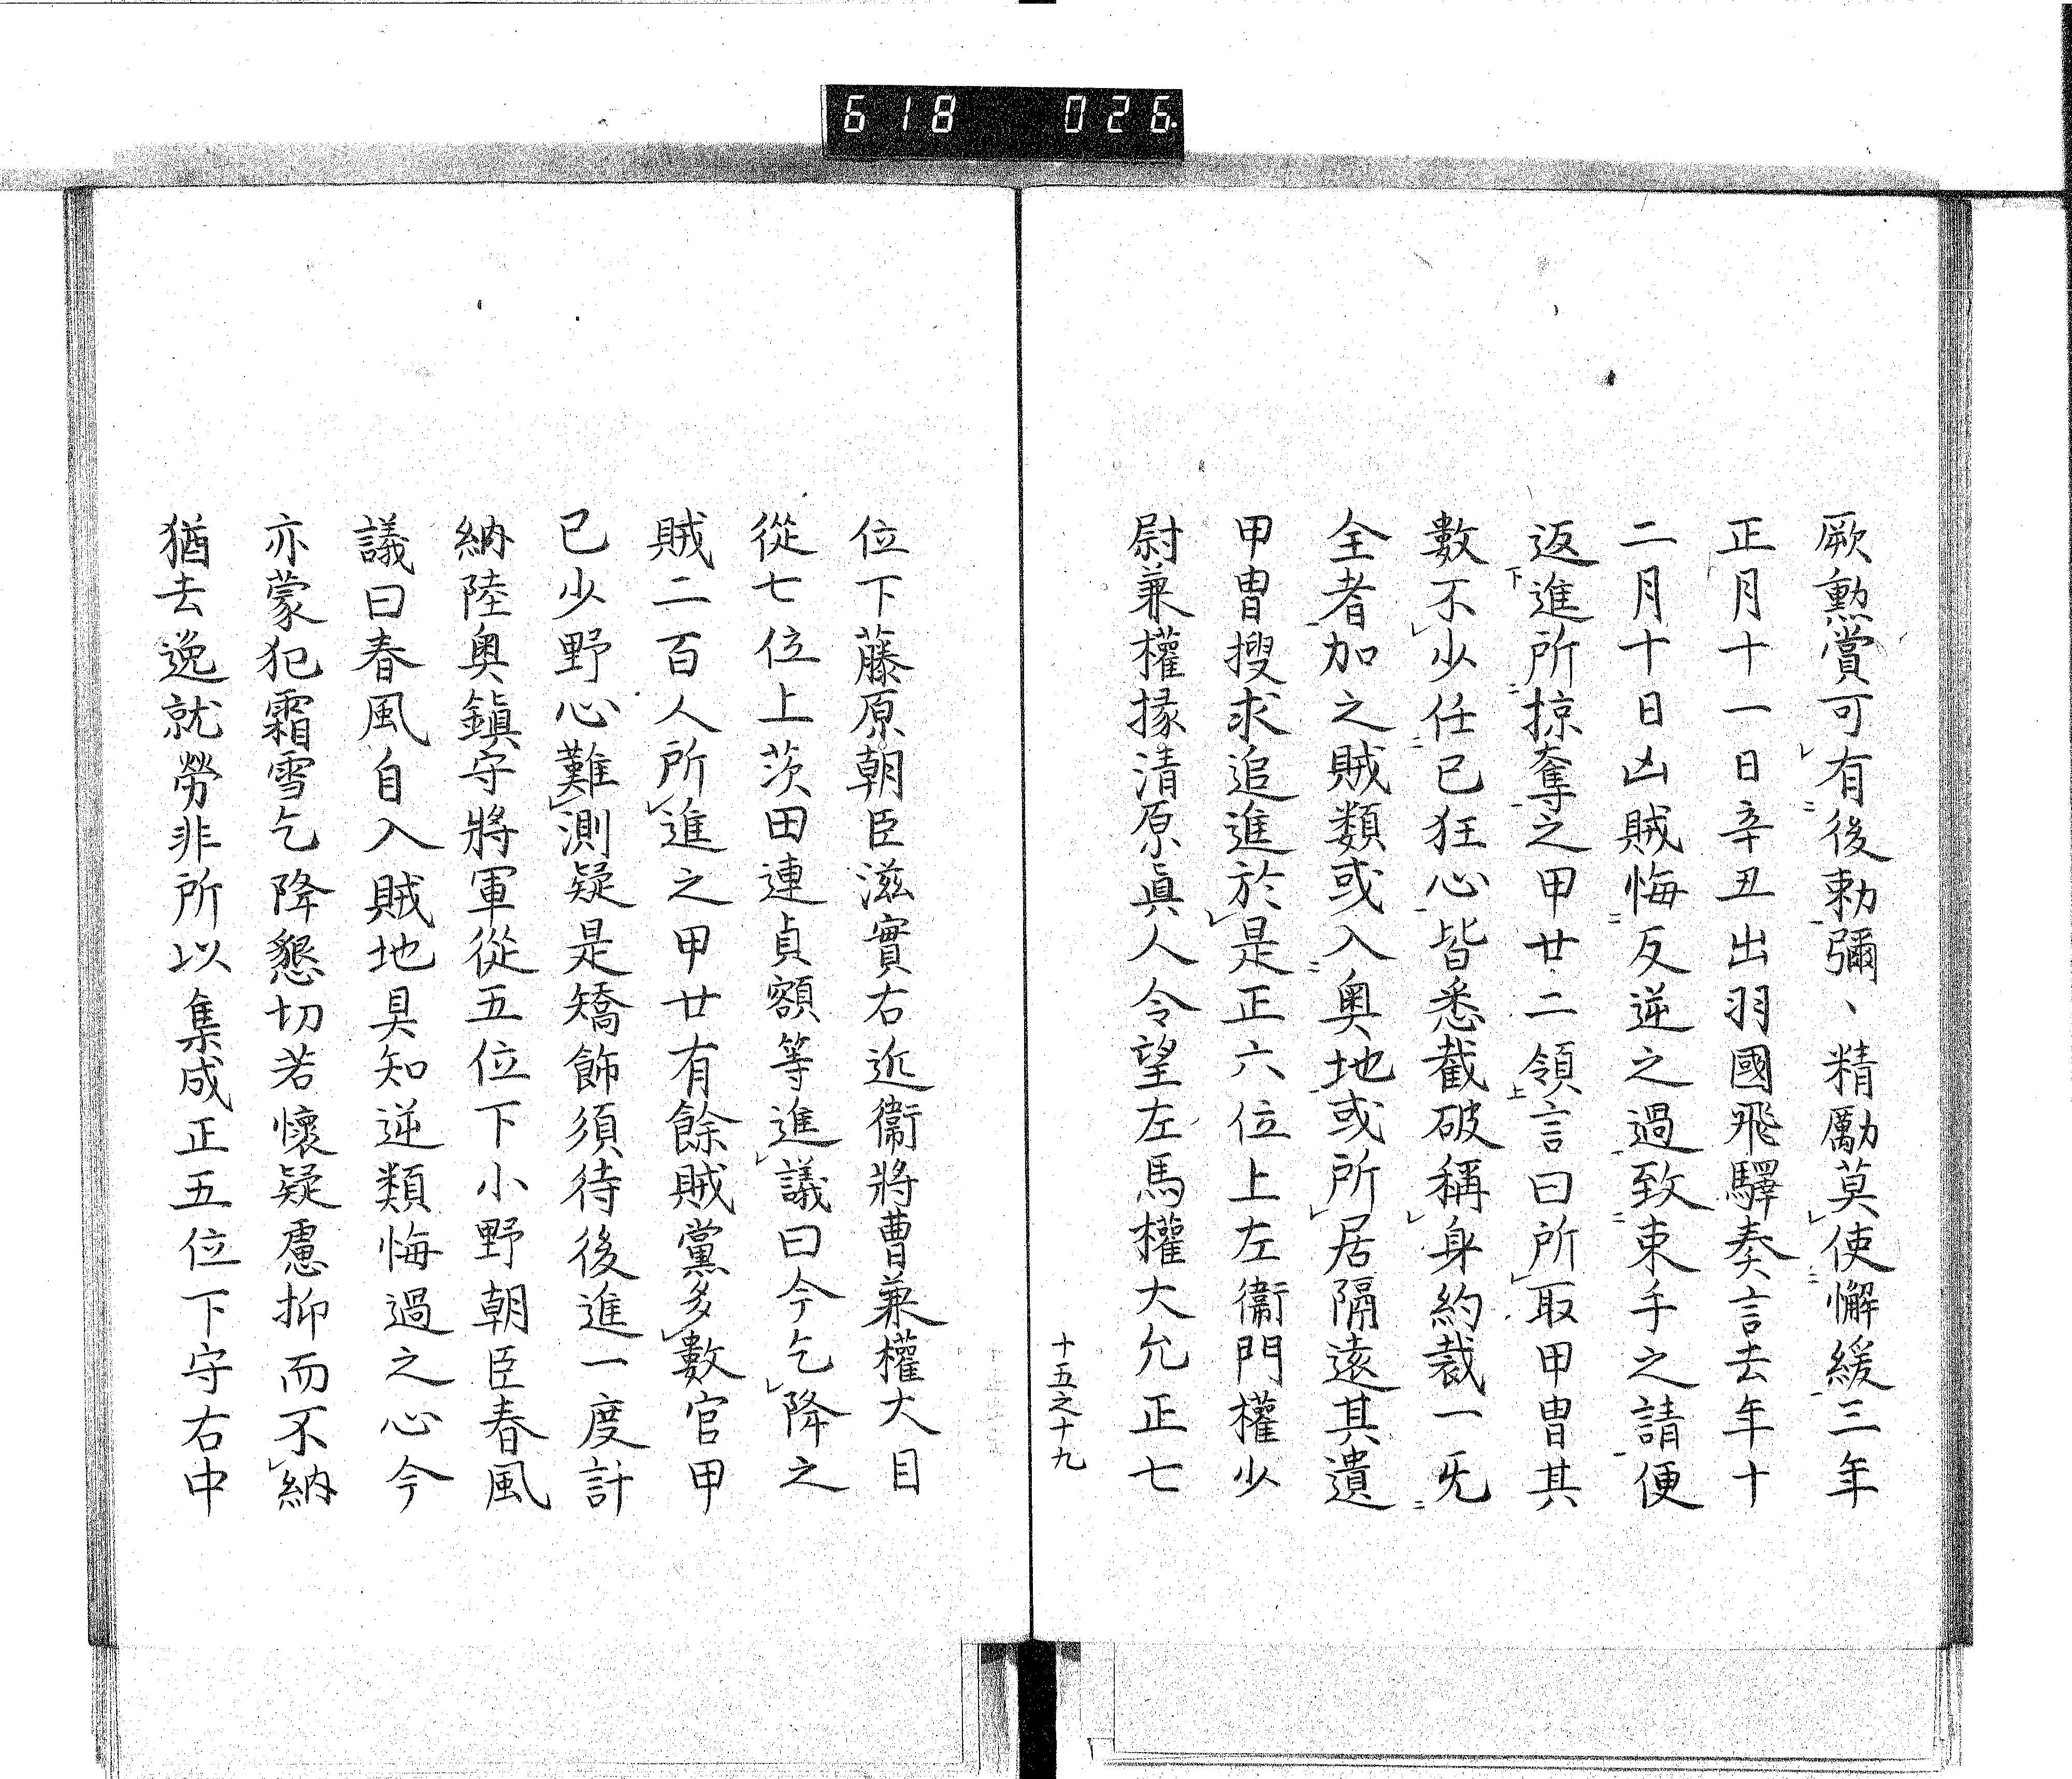 618 026
厥勲賞可有後勅彌、精勵莫使懈緩三年
正月十一日辛丑出羽國飛驛奏言去年十
二月十日凶賊悔反逆之過致束手之請便
返進所掠奪之甲廿二領言曰所取甲冑其
數不少任已狂心皆悉截破稱身約裁一旡
全者加之賊類或入奧地或所居隔遠其遺
甲冑搜求追進於是正六位上左衞門權少
尉兼權掾清原眞人令望左馬權大允正七
十五之十九
位下藤原朝臣滋實右近衞將曹兼權大目
從七位上茨田連貞額等進議曰今乞降之
賊二百人所進之甲廿有餘賊黨多數官甲
已少野心難測疑是矯飾須待後進一度計
納陸奧鎭守將軍從五位下小野朝臣春風
議曰春風自入賊地具知逆類悔過之心今
亦蒙犯霜雪乞降懇切若懷疑慮抑而不納
猶去逸就勞非所以集成正五位下守右中